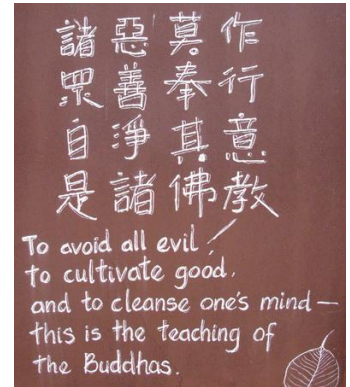 諸惡莫作
眾善奉行
自淨其意
是諸佛教
To avoid all evil
to cultivate good,
and to cleanse one's mind —
this is the teaching of
the Buddhas.